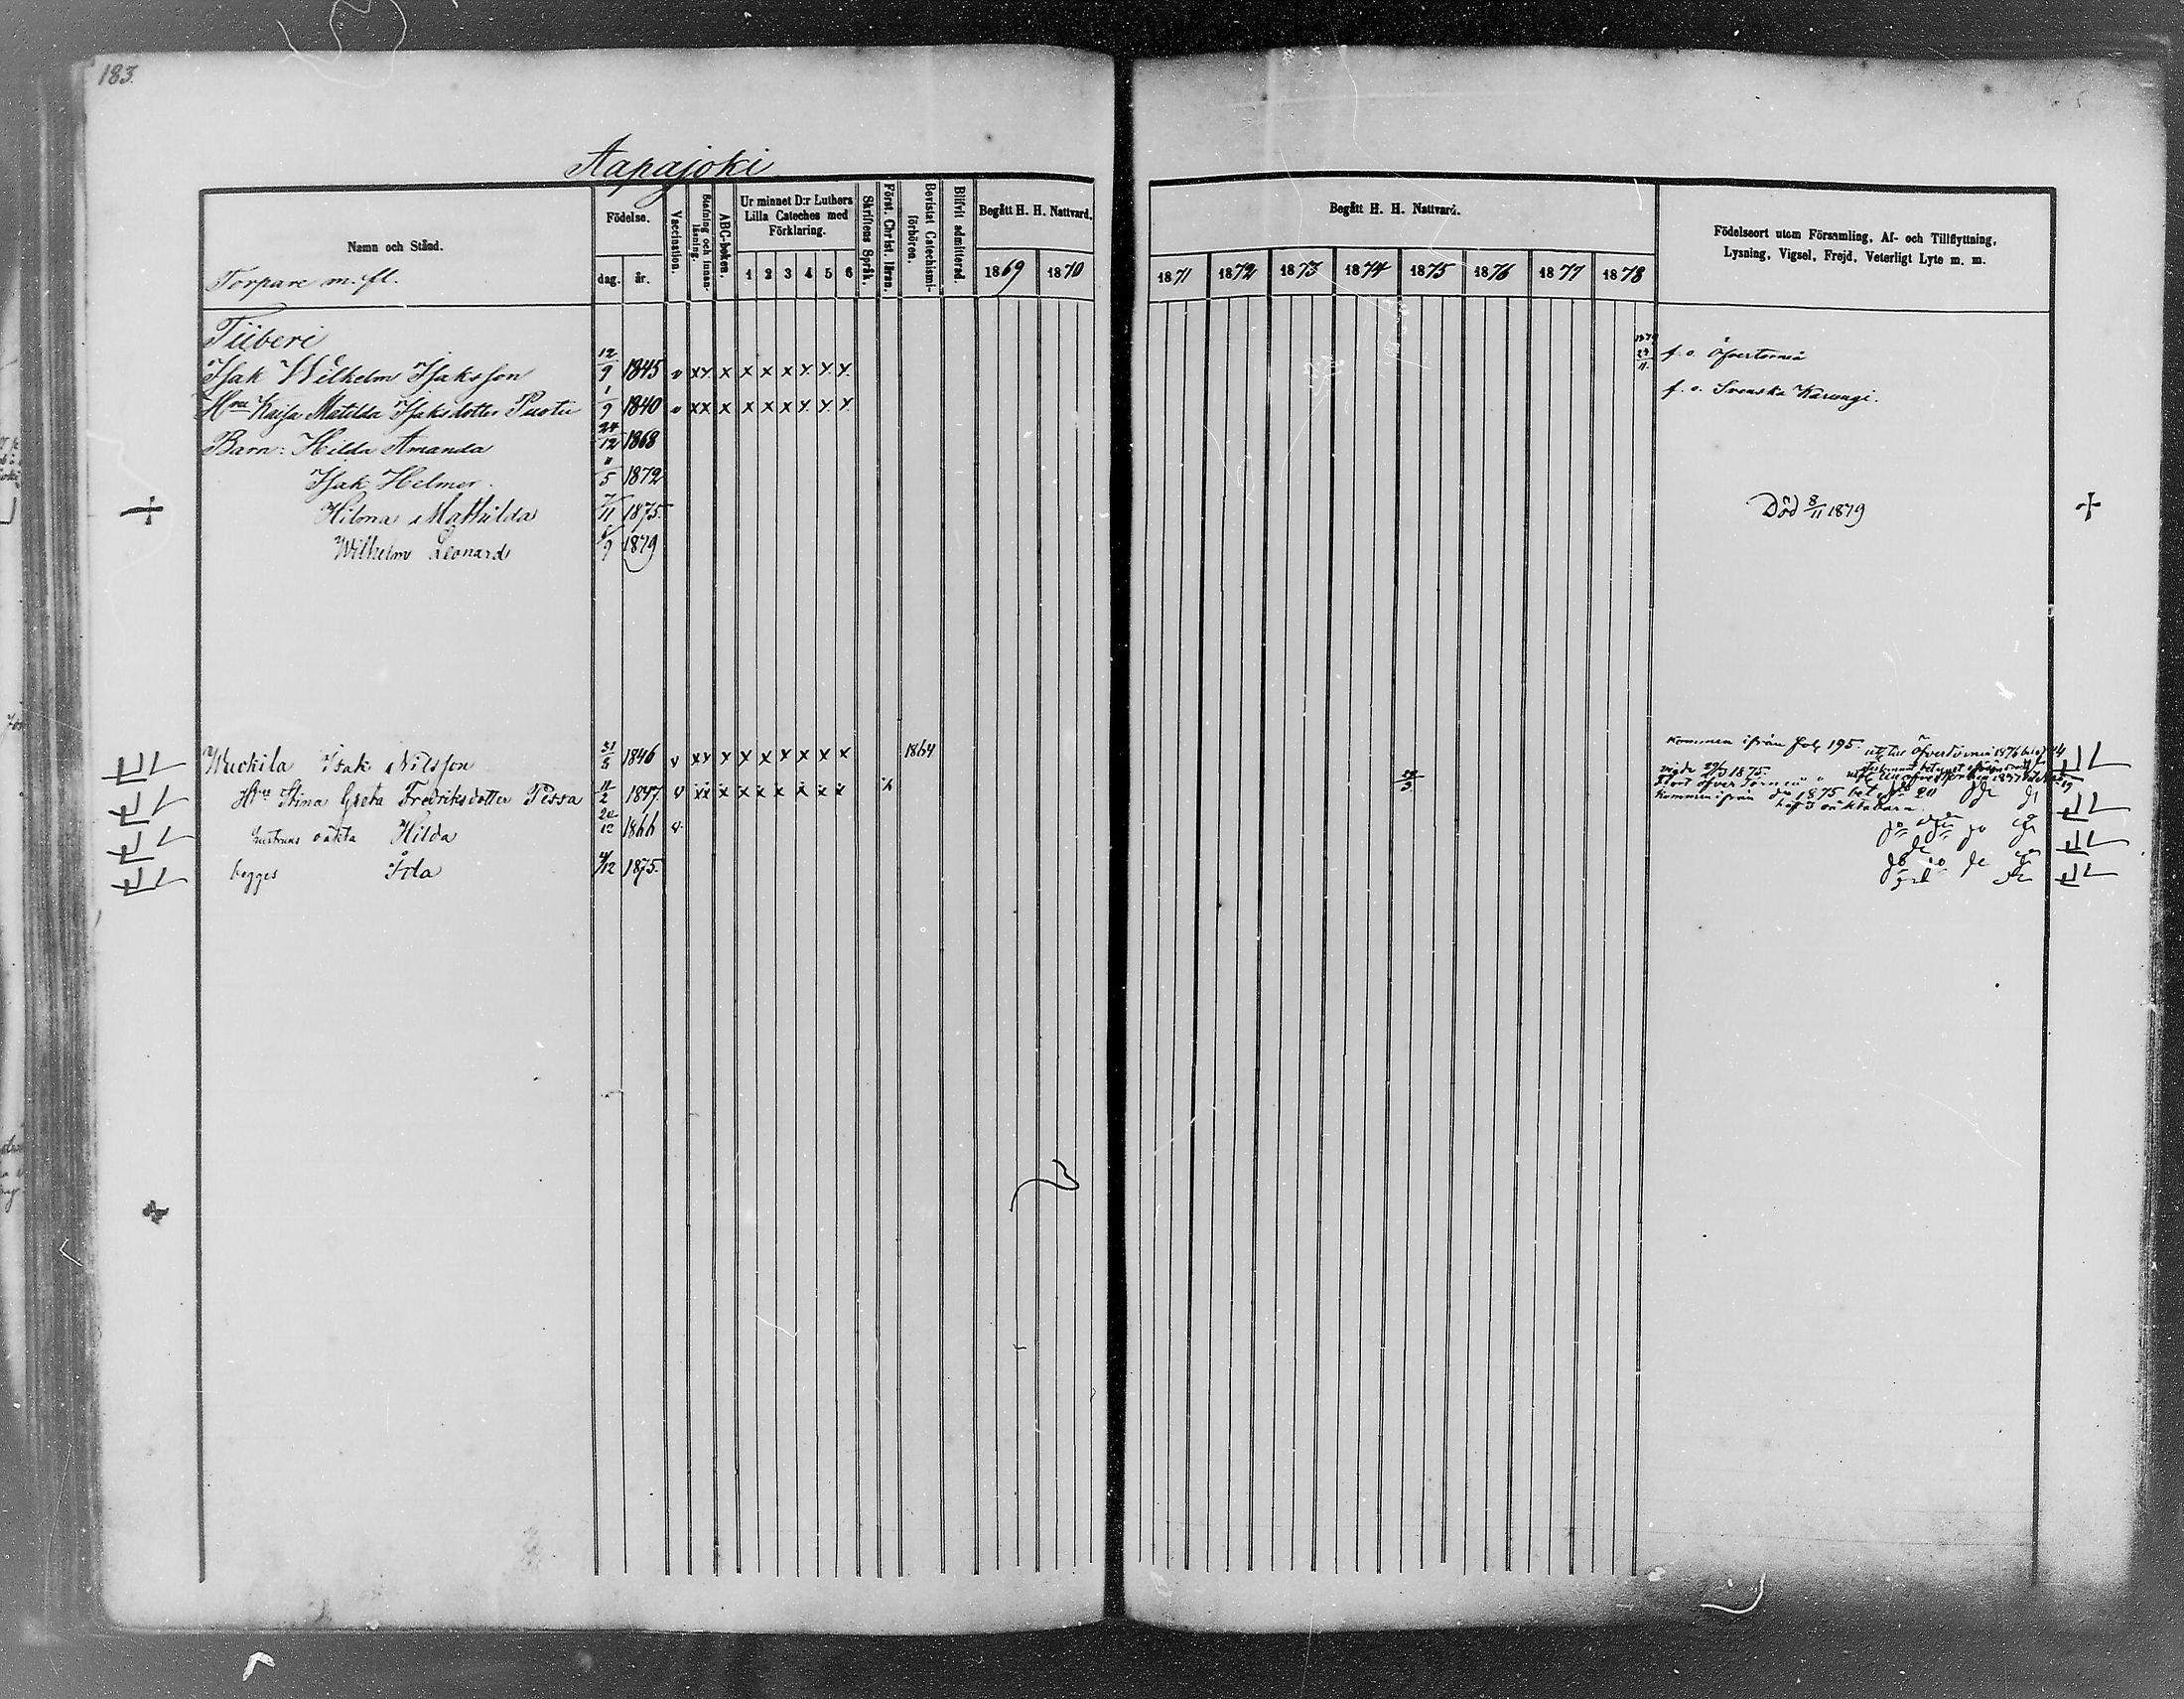 183.
Aapajoki
Namn och Stånd.
Torpare m. fl.
Födelse.
dag. år.
Vaccination.
Stafning och innan-läsning.
ABC-boken.
Ur minnet D:r Luthers
Lilla Cateches med
Förklaring.
1 2 3 4 5 6
Skriftens Språk.
Först. Christ. läran.
Bevistat Catechismi-förhören.
Blifvit admitterad.
Begått H. H. Nattvard.
1869 1870
Begått H. H. Nattvard.
1871 1872 1873 1874 1875 1876 1877 1878
Födelseort utom Församling, Af- och Tillflyttning,
Lysning, Vigsel, Frejd, Veterligt Lyte m. m.
Tiiberi
Isak Wilhelm Isaksson 12/9 1845 v xx x x x x x x x f. o. Öfvertorneå
Hru Kajsa Matilda Isaksdotter Puotu 1/9 1840 v xx x x x x x x x f. o. Svenska Karungi.
Barn: Hilda Amanda 24/12 1868
Isak Helmer. 11/5 1872
Hilma Mathilda 7/11 1875. Död 8/11 1879
Wilhelm Leonard 6/9 1879
Wuckila Isak Nilsson 31/5 1846 v xx x x x x x x x 1864 kommen ifrån fol 195.
Hru Stina Greta Fredriksdotter Pessa 11/2 1847. v xx x x x x x x x
vigde 29/3 1875.
kommen ifrån 1875 bet
haf 3 oäktabarn
hustruns oäkta Hilda 20/12 1866 v.
begges Ida 4/12 1875.